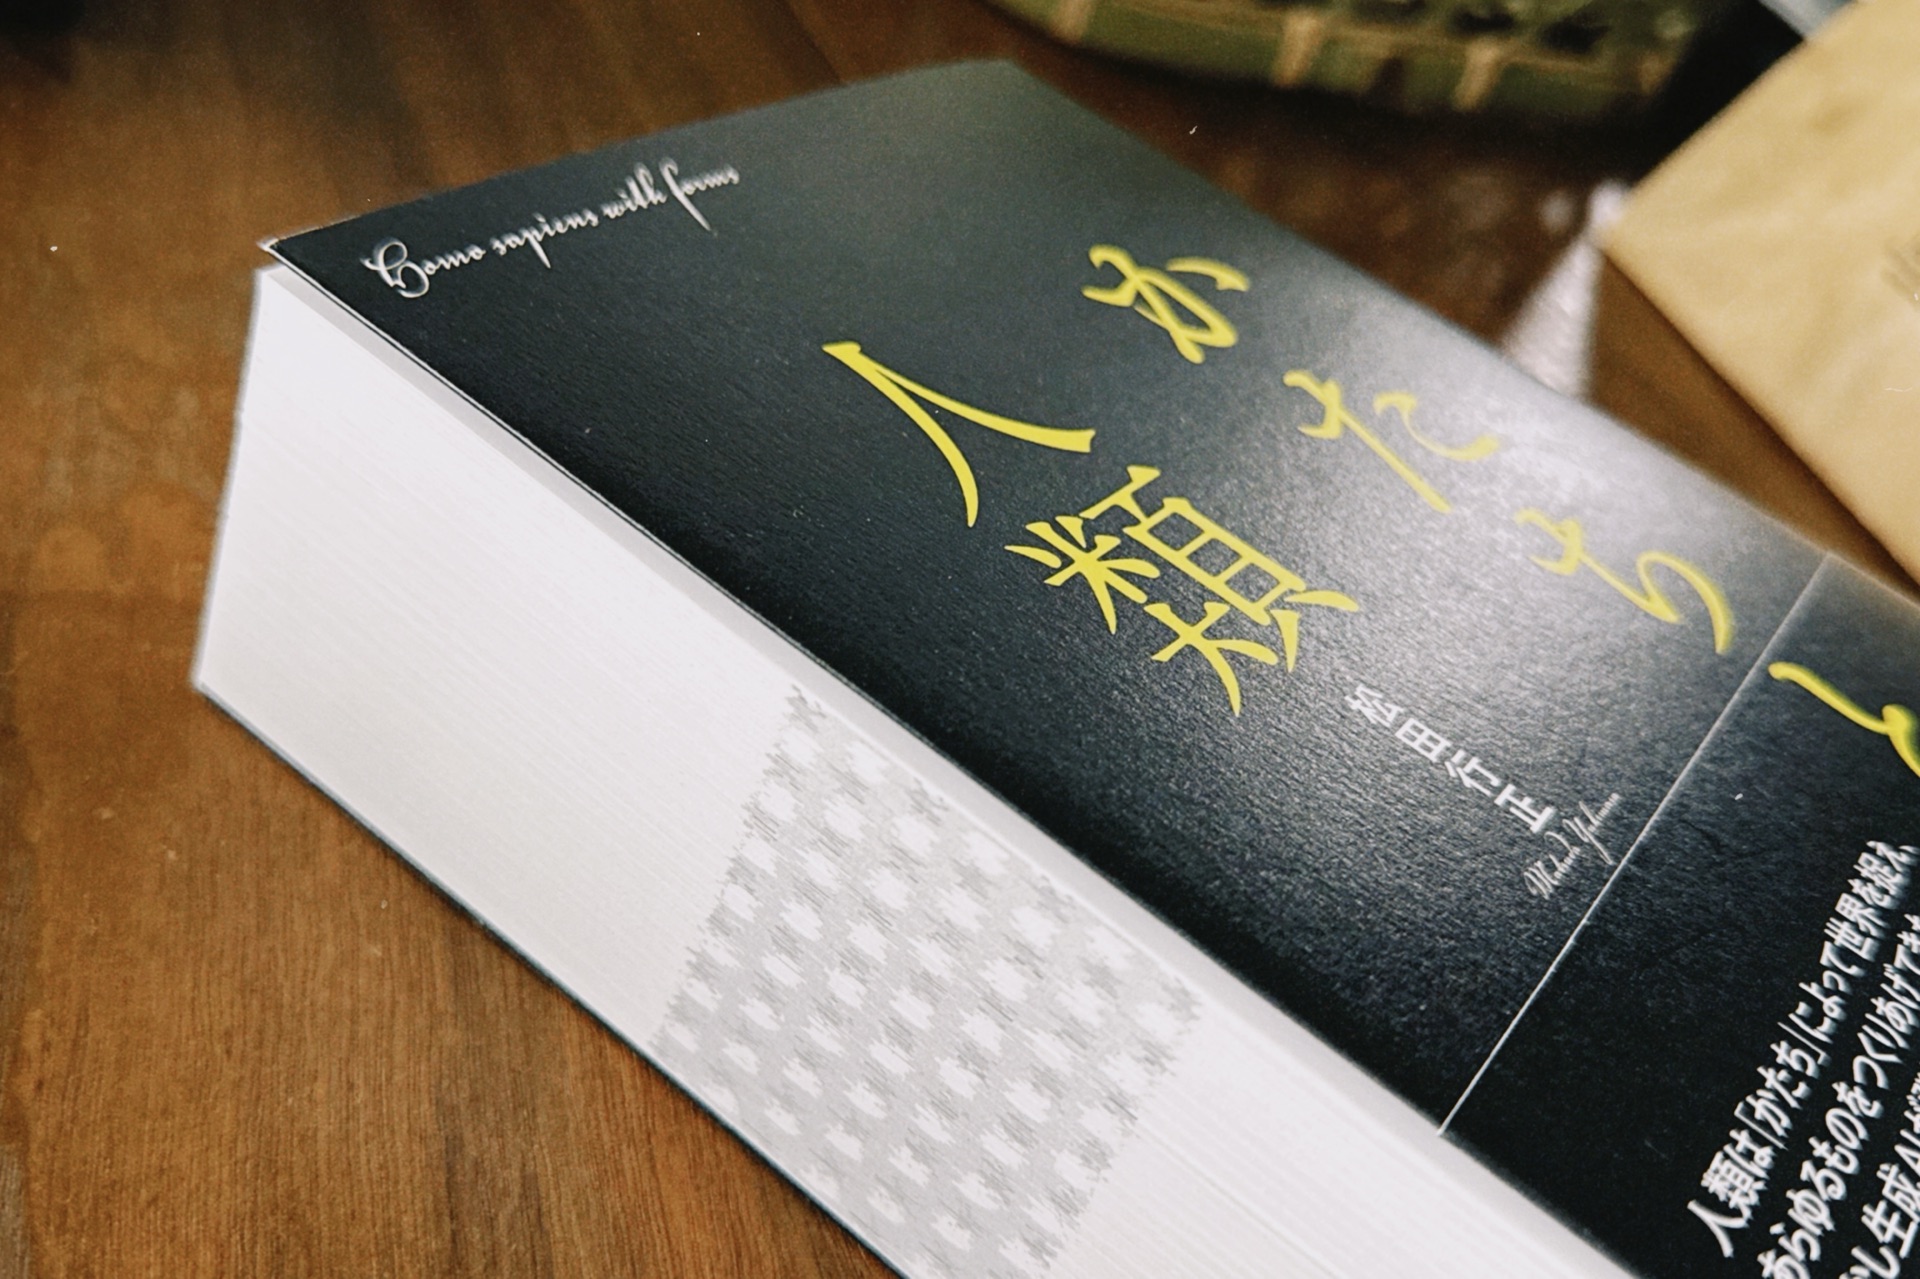 Homo sapiens with forms
かたちと
人類
松田行正
人類は「かたち」によって世界を捉え、
あらゆるものをつくりあげてきた
し生成AIが